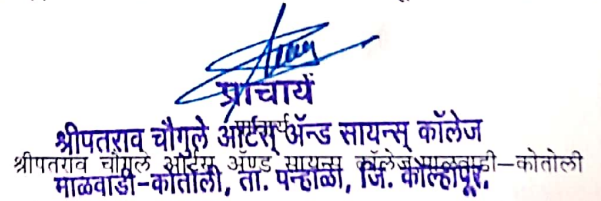 प्राचार्य
प्राचार्य
श्रीपतराव चौगुले आर्टस् ॲन्ड सायन्स् कॉलेज
श्रीपतराव चौगुले आर्टस ॲण्ड सायन्स कॉलेज माळवाडी–कोतोली
माळवाडी-कोतोली, ता. पन्हाळा, जि. कोल्हापूर.